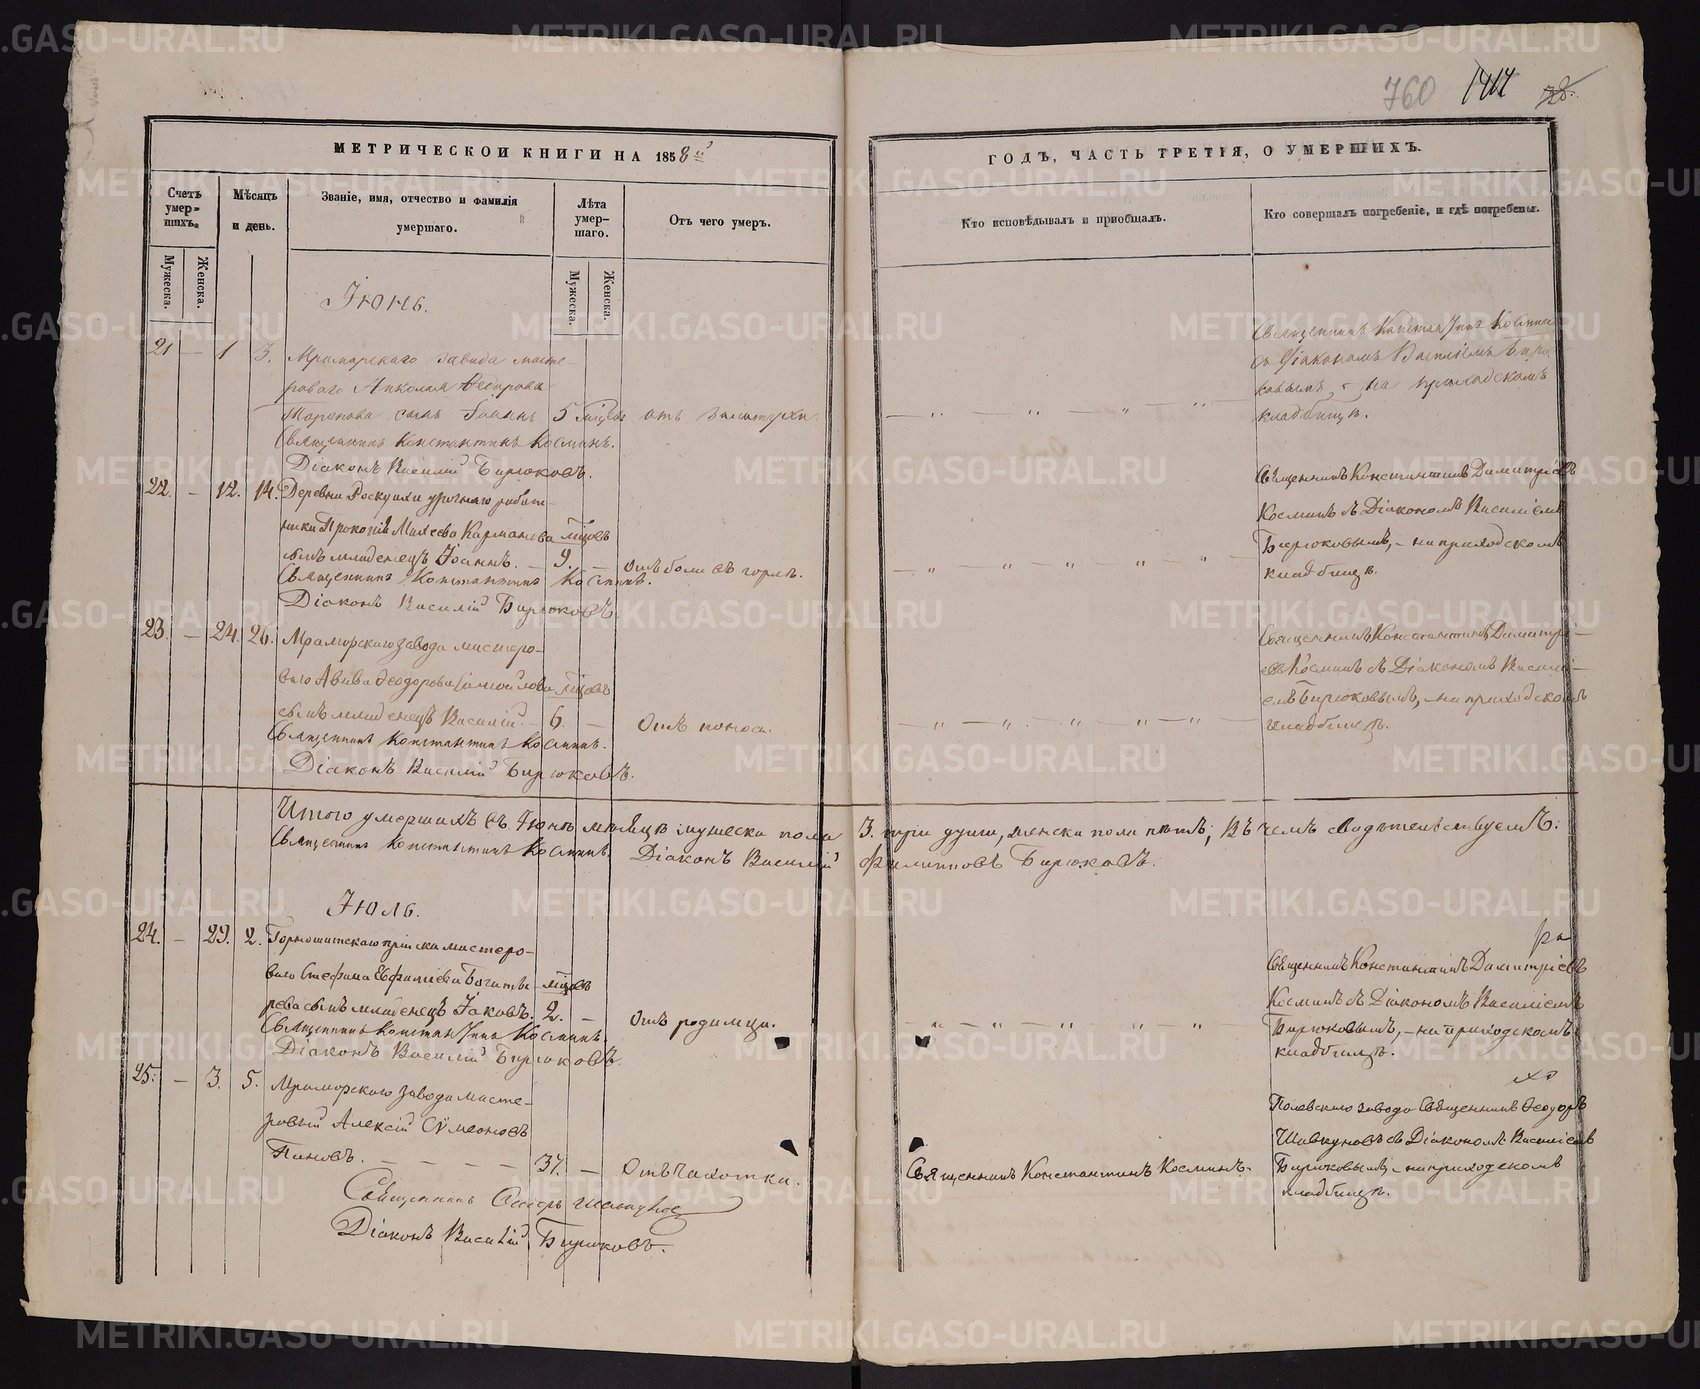 760 1414 78.
МЕТРИЧЕСКОЙ КНИГИ НА 1858 й
ГОДЪ, ЧАСТЬ ТРЕТІЯ, О УМЕРШИХЪ.
Счетъ умер-
шихъ.
Мужеска.
Женска.
Мѣсяцъ
и день.
Званіе, имя, отчество и фамилія
умершаго.
Лѣта
умер-
шаго.
Мужеска.
Женска.
Отъ чего умеръ.
Кто исповѣдывалъ и пріобщалъ.
Кто совершалъ погребеніе, и гдѣ погребены.
Іюнь.
21 — 1 3. Мраморскаго завода масте-
роваго
сынъ Іоаннъ 5 отъ золотухи.
Священникъ Константинъ Косминъ.
Діаконъ Василій Бирюковъ.
Священникъ Константинъ Косминъ
съ Діакономъ Василіемъ Бирю-
ковымъ, - на приходскомъ
кладбищѣ.
22. — 12. 14. Деревни урочнаго работ-
ника Прокопія Карманова мѣсцовъ
сынъ младенецъ Іоаннъ. — 9. — Отъ боли въ горлѣ.
Священникъ Константинъ Косминъ.
Діаконъ Василій Бирюковъ.
Священникъ Константинъ Димитріевъ
Косминъ съ Діакономъ Василіемъ
Бирюковымъ, - на приходскомъ
кладбищѣ.
23. — 24. 26. Мраморскаго завода мастеро-
ваго Авива Феодорова мѣсцовъ
сынъ младенецъ Василій — 6. — Отъ поноса.
Священникъ Константинъ Косминъ.
Діаконъ Василій Бирюковъ.
Священникъ Константинъ Димитрі-
евъ Косминъ съ Діакономъ Василі-
емъ Бирюковымъ, - на приходскомъ
кладбищѣ.
Итого умершихъ въ Іюнѣ мѣсяцѣ мужеска пола 3. три души, женска пола нѣтъ; Въ чемъ свидѣтельствуемъ:
Священникъ Константинъ Косминъ. Діаконъ Василій Филипповъ Бирюковъ.
Іюль.
24. — 29. 2. Горнощитскаго пріиска мастеро-
ваго Стефана Богаты- мѣсцовъ
рева сынъ младенецъ Іаковъ. 2. — Отъ родимца.
Священникъ Константинъ Косминъ.
Діаконъ Василій Бирюковъ.
Священникъ Константинъ Димитріевъ
Косминъ съ Діакономъ Василіемъ
Бирюковымъ, - на приходскомъ
кладбищѣ.
25. — 3. 5. Мраморскаго завода масте-
ровый Алексій Сѵмеоновъ
Пановъ. — — — — — 37. — Отъ чахотки.
Священникъ
Діаконъ Василій Бирюковъ.
Священникъ Константинъ Косминъ.
Полевскаго завода Священникъ Феодоръ
Шавкуновъ съ Діакономъ Василіемъ
Бирюковымъ, - на приходскомъ
кладбищѣ.
METRIKI.GASO-URAL.RU